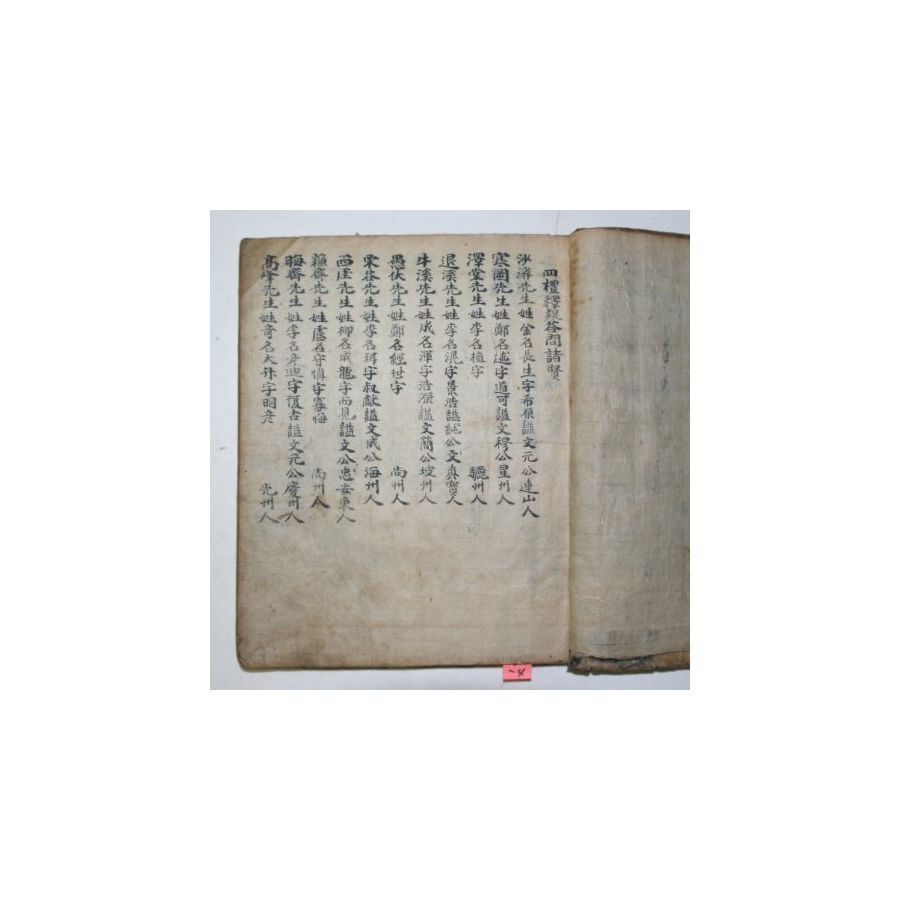 四禮釋疑答問諸賢
沙溪先生姓金名長生字希原諡文元公連山人
寒岡先生姓鄭名逑字道可諡文穆公星州人
澤堂先生姓李名植字 驪州人
退溪先生姓李名滉字景浩諡純公文真寶人
牛溪先生姓成名渾字浩原諡文簡公坡州人
愚伏先生姓鄭名經世字 尚州人
栗谷先生姓李名珥字叔獻諡文成公海州人
西厓先生姓柳名成龍字而見諡文公忠安東人
穌齋先生姓盧名守愼字寡悔 尚州人
晦齋先生姓李名彦迪字復古諡文元公慶州人
高峰先生姓奇名大升字明彦 光州人
一4